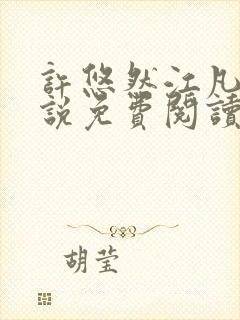 許悠然江凡
說免費閱讀
胡莹